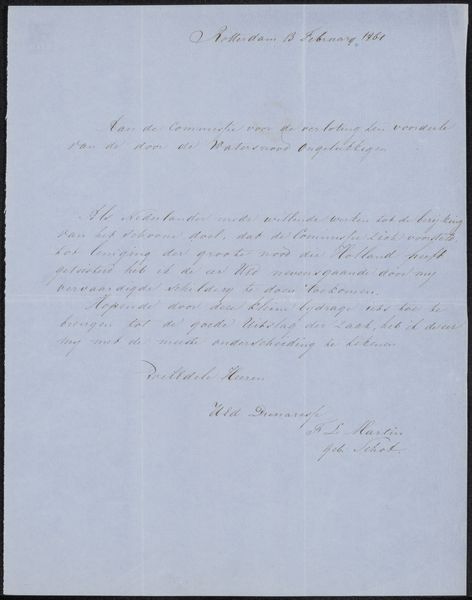 Rotterdam 13 February 1861
Aan de Commissie voor de verloting ten voordeele
van de door de Watersnood Ongelukkigen
Als Nederlander mede willende werken tot de bereiking
van het schoone doel, dat de Commissie zich voorstelt
tot leniging der groote nood die Holland heeft
geteisterd heb ik de eer UEd nevensgaande door my
vervaardigde schildery te doen toekomen.
Hopende door deze kleine bydrage iets toe te
brengen tot de goede Uitslag der Zaak, heb ik de eer
my met de meeste onderscheiding te teekenen
WelEdele Heeren
UEd Dienaresse
F L Martin
geb. Schot